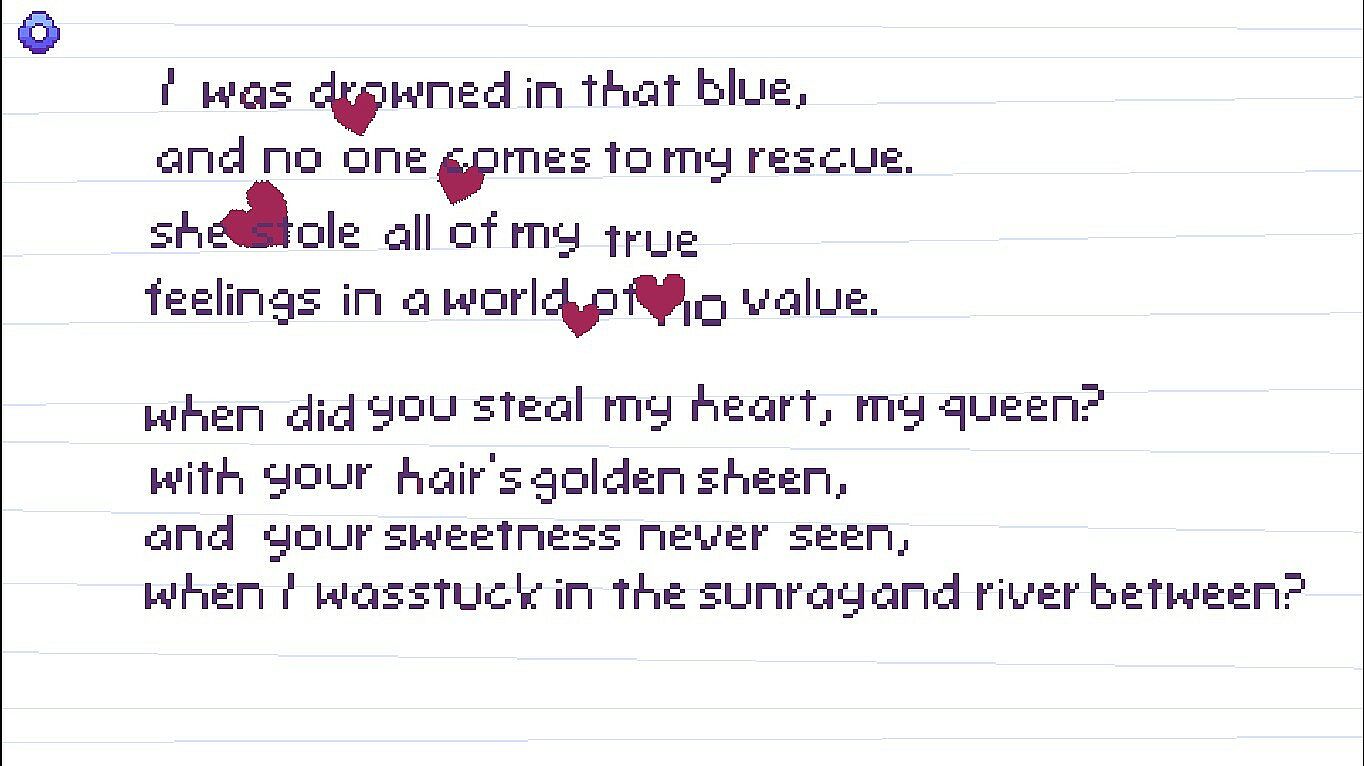 I was drowned in that blue,
and no one comes to my rescue.
she stole all of my true
feelings in a world of no value.
when did you steal my heart, my queen?
with your hair's golden sheen,
and your sweetness never seen,
when I was stuck in the sunray and river between?